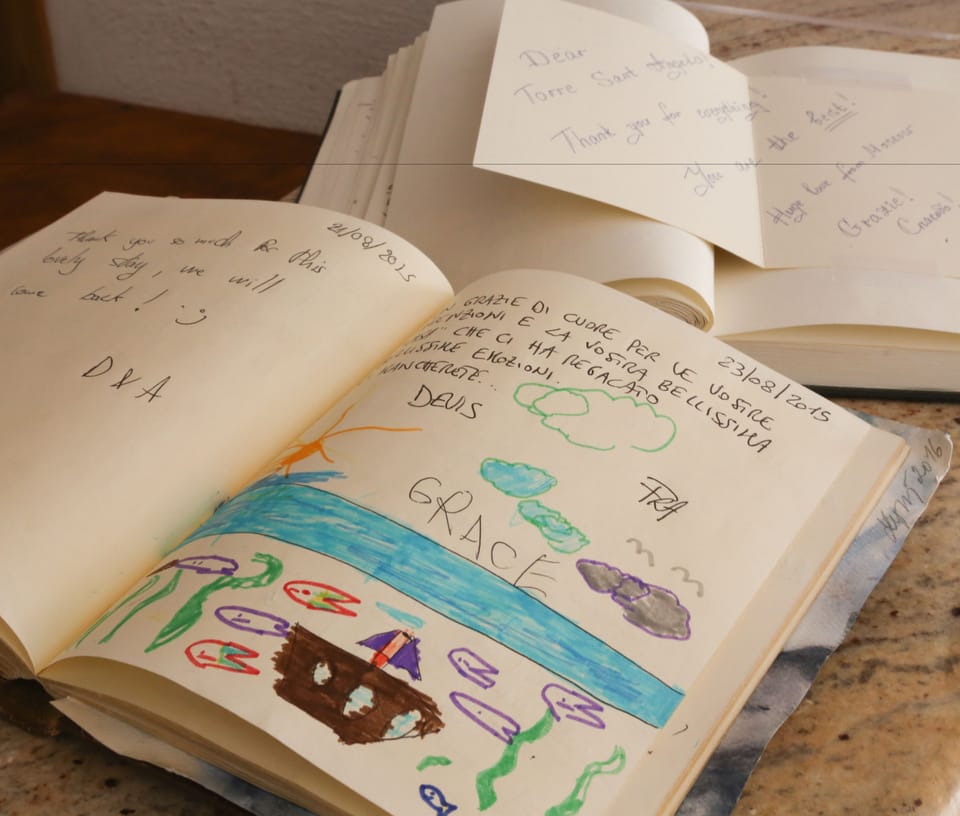 21/08/2015
Thank you so much for this
lovely stay, we will
come back! :)
D & A
23/08/2015
GRAZIE DI CUORE PER LE VOSTRE
E LA VOSTRA BELLISSIMA
CHE CI HA REGALATO
EMOZIONI.
MANCHERETE...
DEVIS
FRA
GRACE
Dear
Torre Sant Angelo!
Thank you for everything!
You are the best!
Huge love from
Grazie!
2016